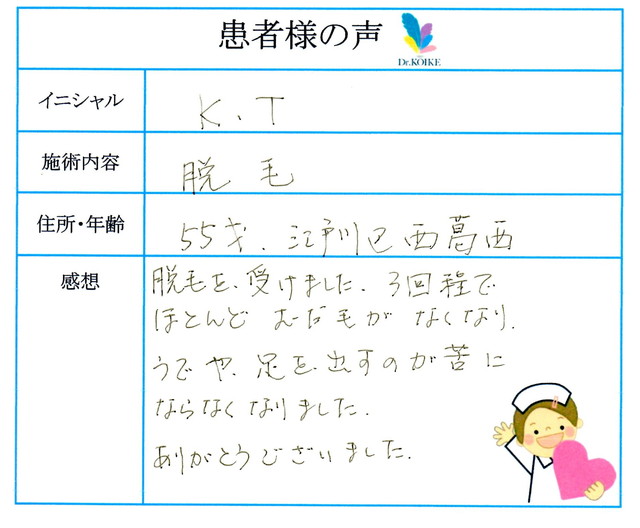 患者様の声
Dr.KOIKE
イニシャル
K.T
施術内容
脱毛
住所・年齢
55才.江戸川区西葛西
感想
脱毛を受けました.3回程で
ほとんどむだ毛がなくなり.
うでや足を出すのが苦に
ならなくなりました.
ありがとうございました.